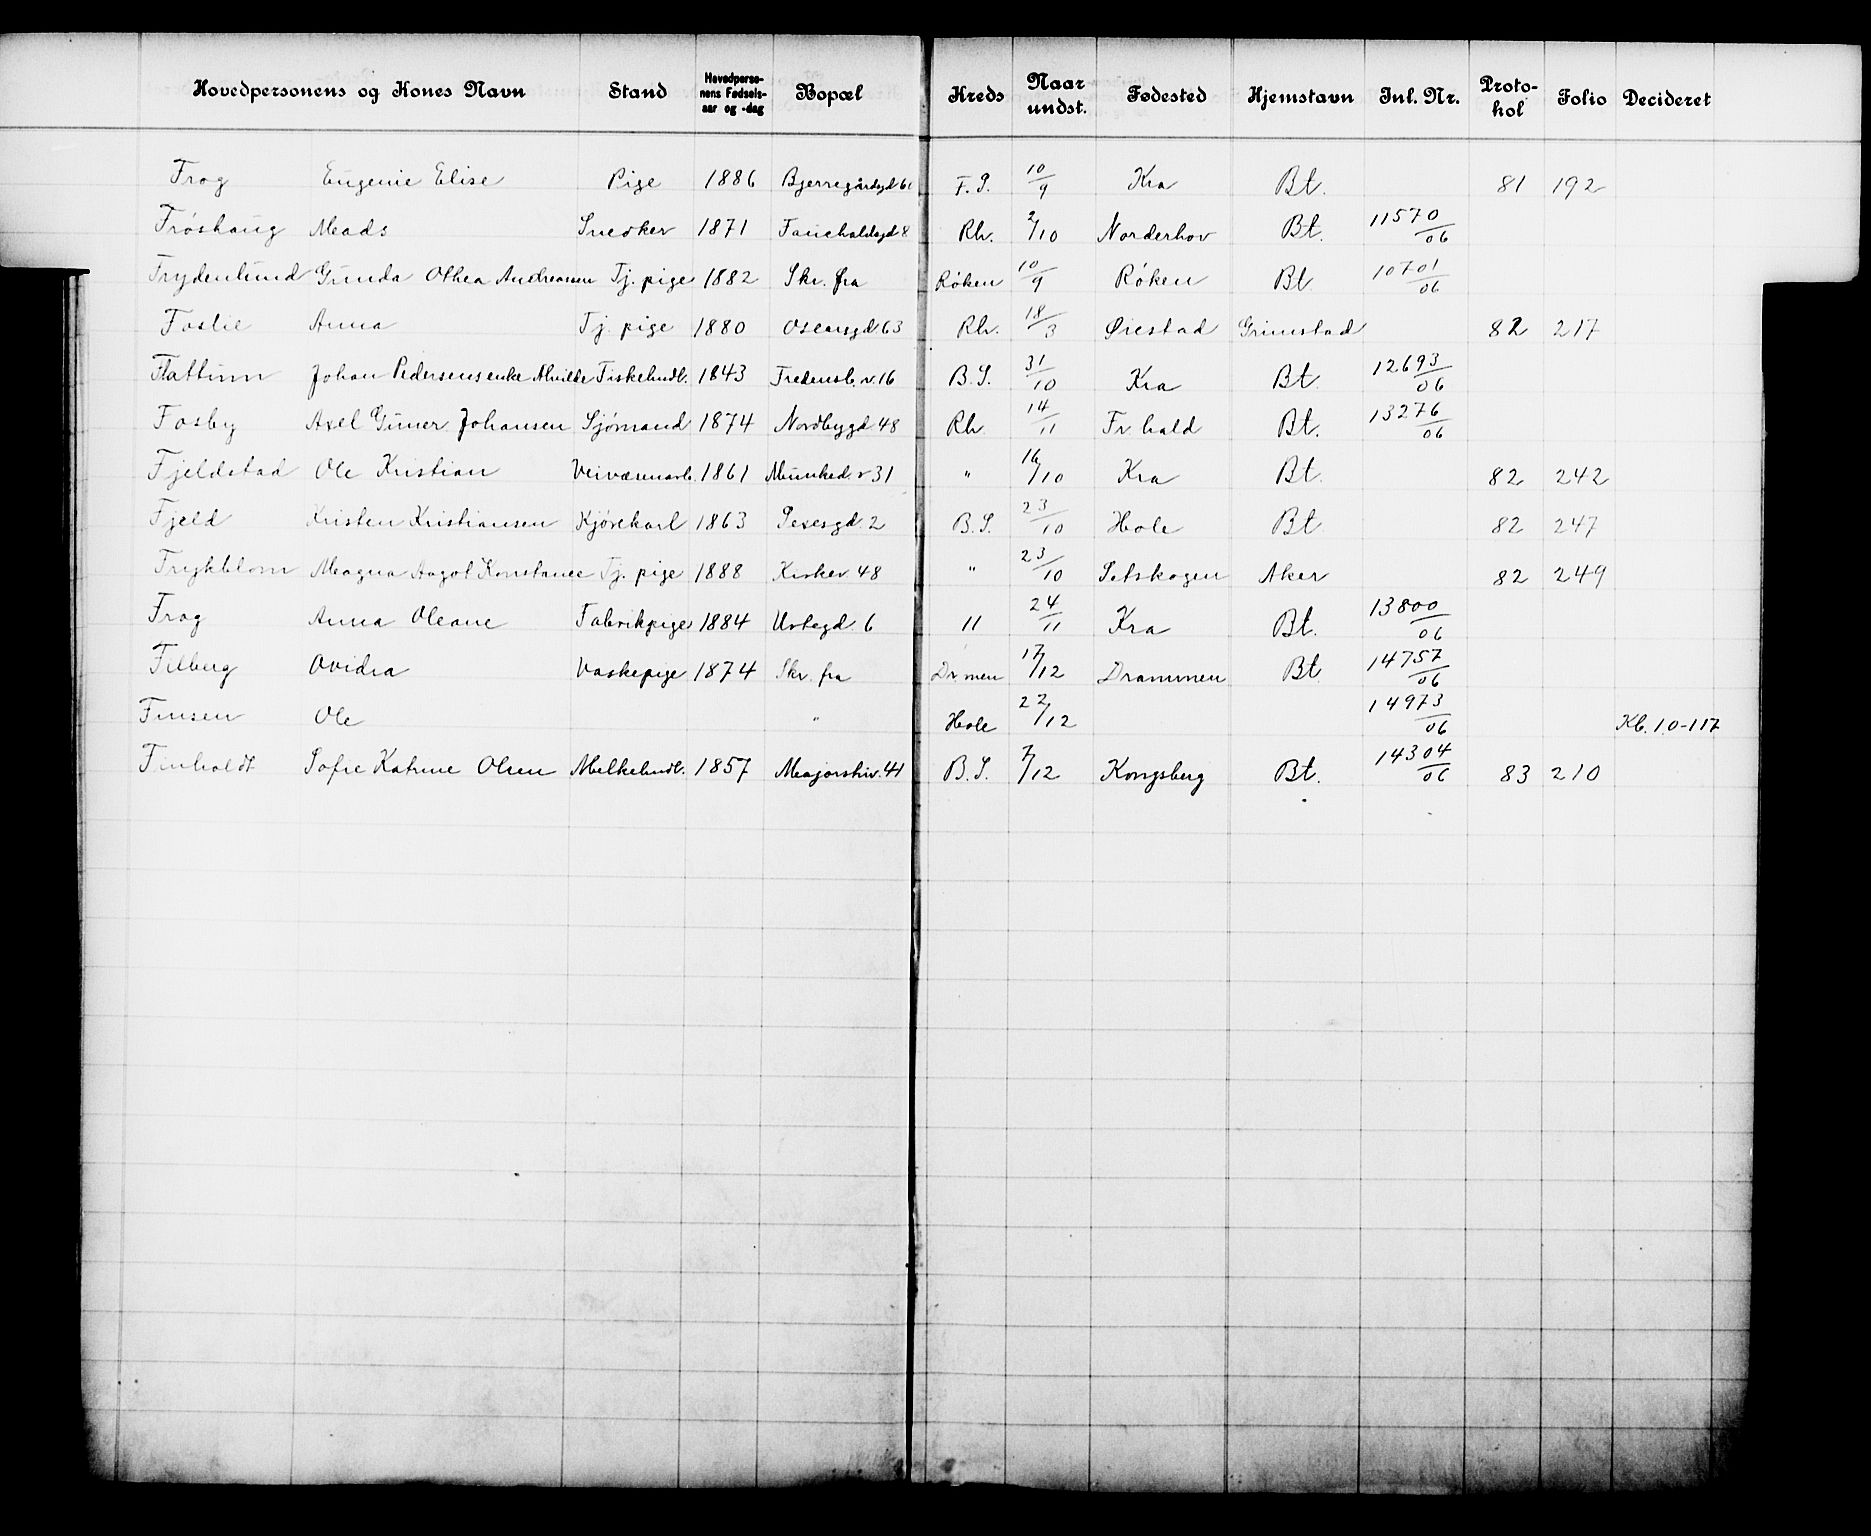 Hovedpersonens og Kones Navn Stand Hovedperso-nens Fødsels-aar og -dag Bopæl Kreds Naar undst. Fødested Hjemstavn Inl. Nr. Proto-kol Folio Decideret
Frog Eugenie Elise Pige 1886 Bjerregårdsgd 61 F. S. 10/9 Kra Bt. 81 192
Frøshaug Mads Snedker 1871 Rh. 2/10 Norderhov Bt. 11570/06
Frydenlund Gunda Othea Andreasen Tj. pige 1882 Skr. fra Røken 10/9 Røken Bt 10701/06
Foslie Anna Tj. pige 1880 Oscarsgd. 63 Rh. 18/3 Øiestad Grimstad 82 217
Flattum Johan Pedersens enke Alvilde Fiskehndl. 1843 Fredensb. v. 16 B. S. 31/10 Kra Bt. 12693/06
Fosby Axel Guner Johansen Sjømand 1874 Nordbygd. 48 Rh. 14/11 Fr. hald Bt. 13276/06
Fjeldstad Ole Kristian Veivæsenarb. 1861 Munked. v 31 " 16/10 Kra Bt. 82 242
Fjeld Kristen Kristiansen Kjørekarl 1863 2 B. S. 23/10 Hole Bt. 82 247
Frykblom Magna Aagot Konstance Tj. pige 1888 Kirkev. 48 " 23/10 Setskogen Aker 82 249
Frog Anna Oleane Fabrikpige 1884 Urtegd. 6 " 24/11 Kra Bt. 13800/06
Filberg Ovidia Vaskepige 1874 Skr. fra Dr.men 17/12 Drammen Bt. 14757/06
Finsen Ole " Hole 22/12 14973/06 Kb. 10-117
Finholdt Sofie Katrine Olsen Melkehndl. 1857 Majorstuv. 41 B. S. 7/12 Kongsberg Bt. 14304/06 83 210